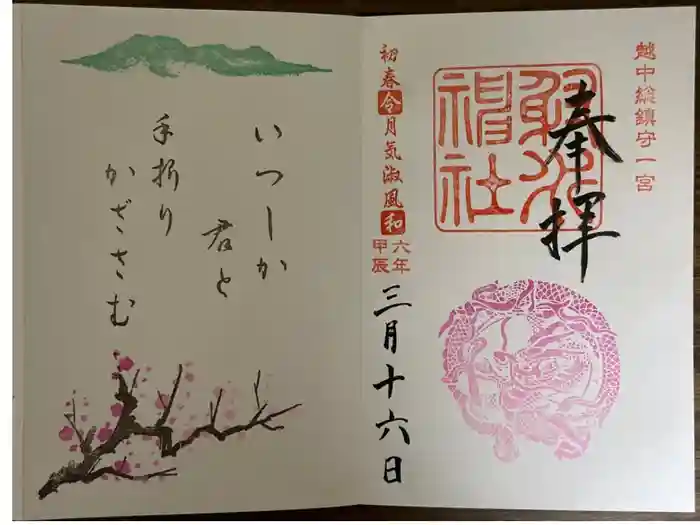 越中総鎮守一宮
奉拝
射水神社
初春令月気淑風和
甲辰
六年
三月十六日
いつしか
君と
手折り
かざさむ